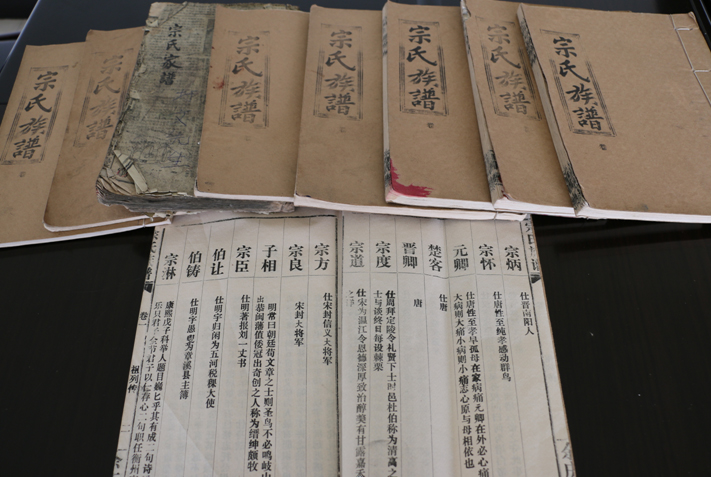 宗氏族譜
宗氏族譜
宗氏家譜
宗氏族譜
宗氏族譜
宗氏族譜
宗氏族譜
宗氏族譜
宗炳 仕晋南阳人
宗怀 仕唐性至纯孝感动群鸟
元卿 仕唐性至孝早孤母在家病痛元卿在外必心痛
大病则大痛小病则小痛志心原与母相依也
楚客 仕唐
晋卿 唐
宗度 仕周拜定陵令礼贤下士时邑杜伯称为清高之
士与谈终日每设棘栗
宗道 仕宋为温江令恩德深厚致治醇美有甘露嘉禾
宗方 仕宋封信义大将军
宗良 宋封大将军
子相 明常曰朝廷苟文章之士则圣鸟不必鸣岐山
出恭闽藩值倭冠出奇创之人称为缙绅颇牧
宗臣 仕明著报刘一丈书
伯让 仕明字归闲为五河税稞大使
伯铸 仕明字愚 为章溪县主簿
宗霖 康熙戊子科举人题目嫡匕乎其有成二句诗
君子以仁存心二句职任衡州
卷一